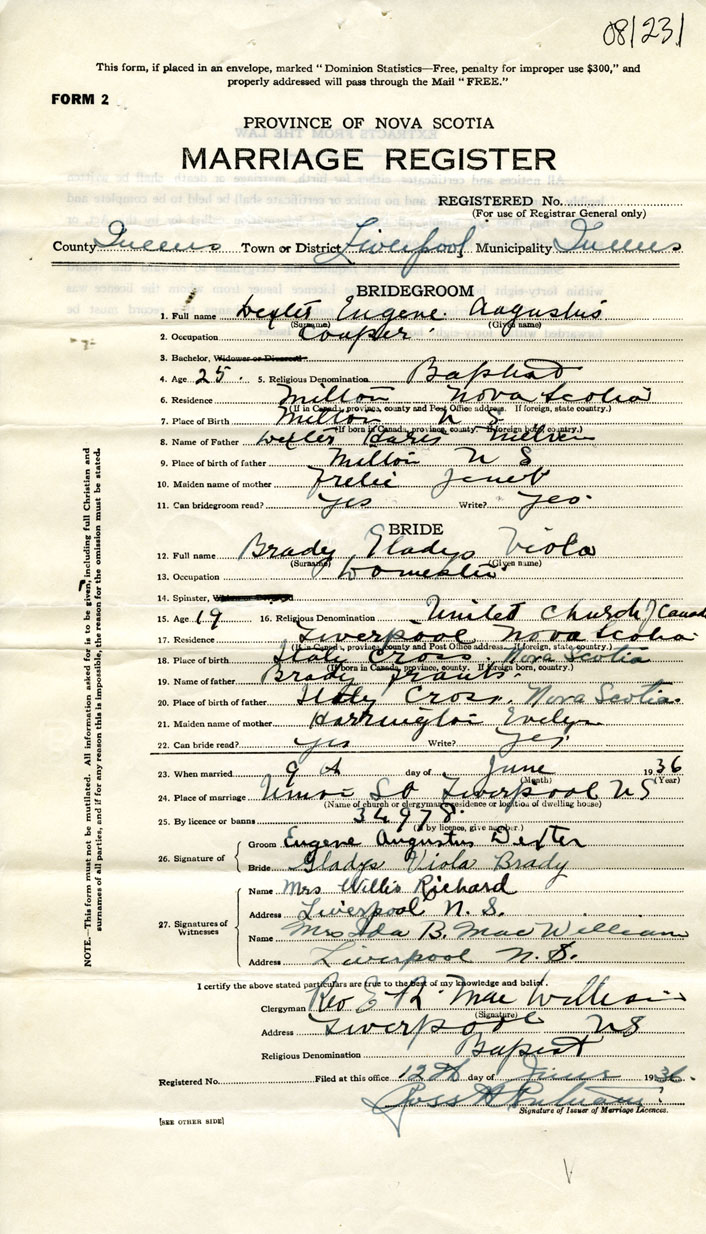 08231
This form, if placed in an envelope, marked "Dominion Statistics—Free, penalty for improper use $300," and
properly addressed will pass through the Mail "FREE."
FORM 2
PROVINCE OF NOVA SCOTIA
MARRIAGE REGISTER
REGISTERED No.
(For use of Registrar General only)
County Queens Town or District Liverpool Municipality Queens
BRIDEGROOM
1. Full name Dexter Eugene Augustus
(Surname) (Given name)
2. Occupation Cooper
3. Bachelor, Widower or Divorced
4. Age 25. 5. Religious Denomination Baptist
6. Residence Milton Nova Scotia
(If in Canada, province, county and Post Office address. If foreign, state country.)
7. Place of Birth Milton N S
(If born in Canada, province, county. If foreign born, country.)
8. Name of Father Dexter
9. Place of birth of father Milton N S
10. Maiden name of mother
11. Can bridegroom read? yes Write? yes
BRIDE
12. Full name Brady Gladys Viola
(Surname) (Given name)
13. Occupation Domestic
14. Spinster,
15. Age 19 16. Religious Denomination United Church of Canada
17. Residence Liverpool Nova Scotia
(If in Canada, province, county and Post Office address. If foreign, state country.)
18. Place of birth Italy Cross, Nova Scotia
(If born in Canada, province, county. If foreign born, country.)
19. Name of father Brady
20. Place of birth of father Italy Cross, Nova Scotia.
21. Maiden name of mother Harrington Evelyn
22. Can bride read? yes Write? yes
23. When married 9th day of June 1936
(Month) (Year)
24. Place of marriage Union St Liverpool NS
(Name of church or clergyman's residence or location of dwelling house)
25. By licence or banns 34978.
(If by licence, give number.)
26. Signature of
Groom Eugene Augustus Dexter
Bride Gladys Viola Brady
27. Signatures of Witnesses
Name Mrs Willis Richard
Address Liverpool N. S.
Name Mrs Ida B. MacWilliam
Address Liverpool N. S.
I certify the above stated particulars are true to the best of my knowledge and belief.
Clergyman Rev E R MacWilliam
(Signature)
Address Liverpool NS
Religious Denomination Baptist
Registered No. Filed at this office 12th day of June 1936.
Signature of Issuer of Marriage Licences.
[SEE OTHER SIDE]
NOTE.—This form must not be mutilated. All information asked for is to be given, including full Christian and
surnames of all parties, and if for any reason this is impossible, the reason for the omission must be stated.